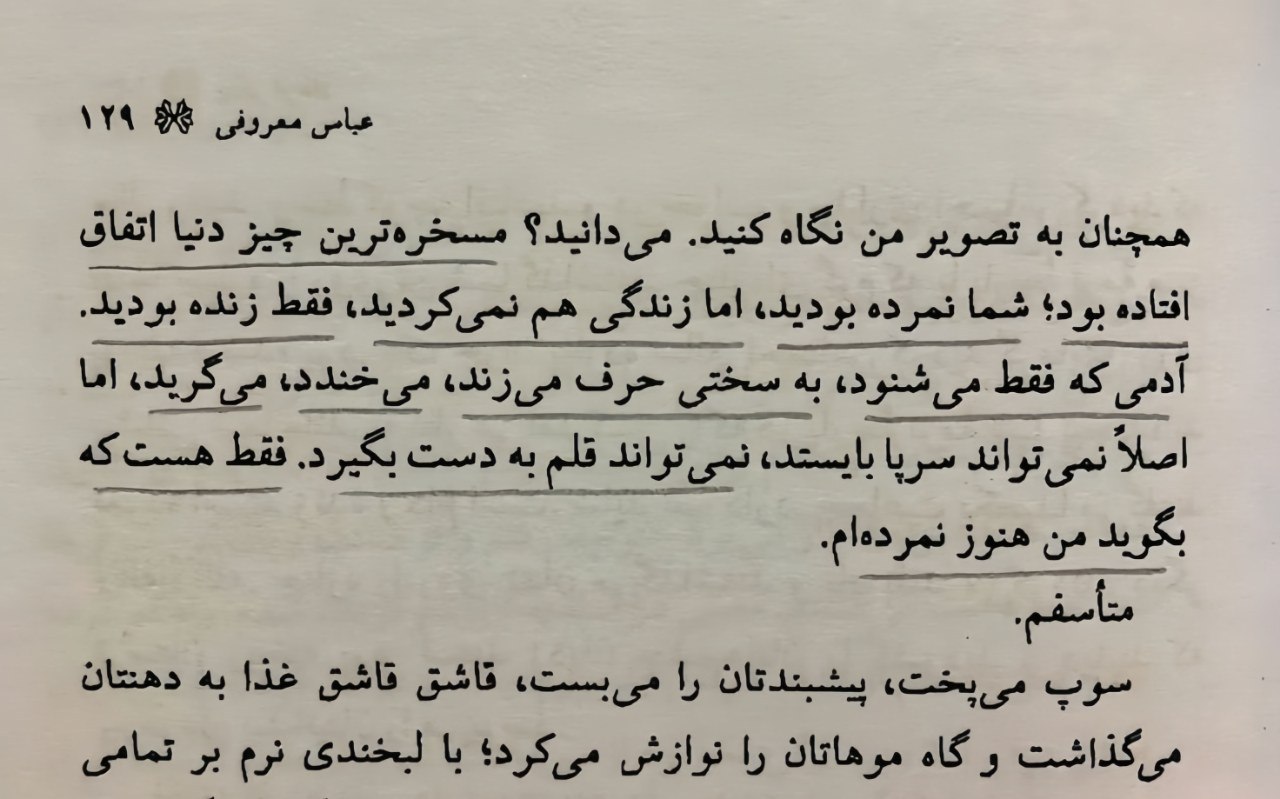 عباس معروفی ۱۲۹
همچنان به تصویر من نگاه کنید. می‌دانید؟ مسخره‌ترین چیز دنیا اتفاق
افتاده بود؛ شما نمرده بودید، اما زندگی هم نمی‌کردید، فقط زنده بودید.
آدمی که فقط می‌شنود، به سختی حرف می‌زند، می‌خندد، می‌گرید، اما
اصلاً نمی‌تواند سرپا بایستد، نمی‌تواند قلم به دست بگیرد. فقط هست که
بگوید من هنوز نمرده‌ام.
متأسفم.
سوپ می‌پخت، پیشبندتان را می‌بست، قاشق قاشق غذا به دهنتان
می‌گذاشت و گاه موهاتان را نوازش می‌کرد؛ با لبخندی نرم بر تمامی